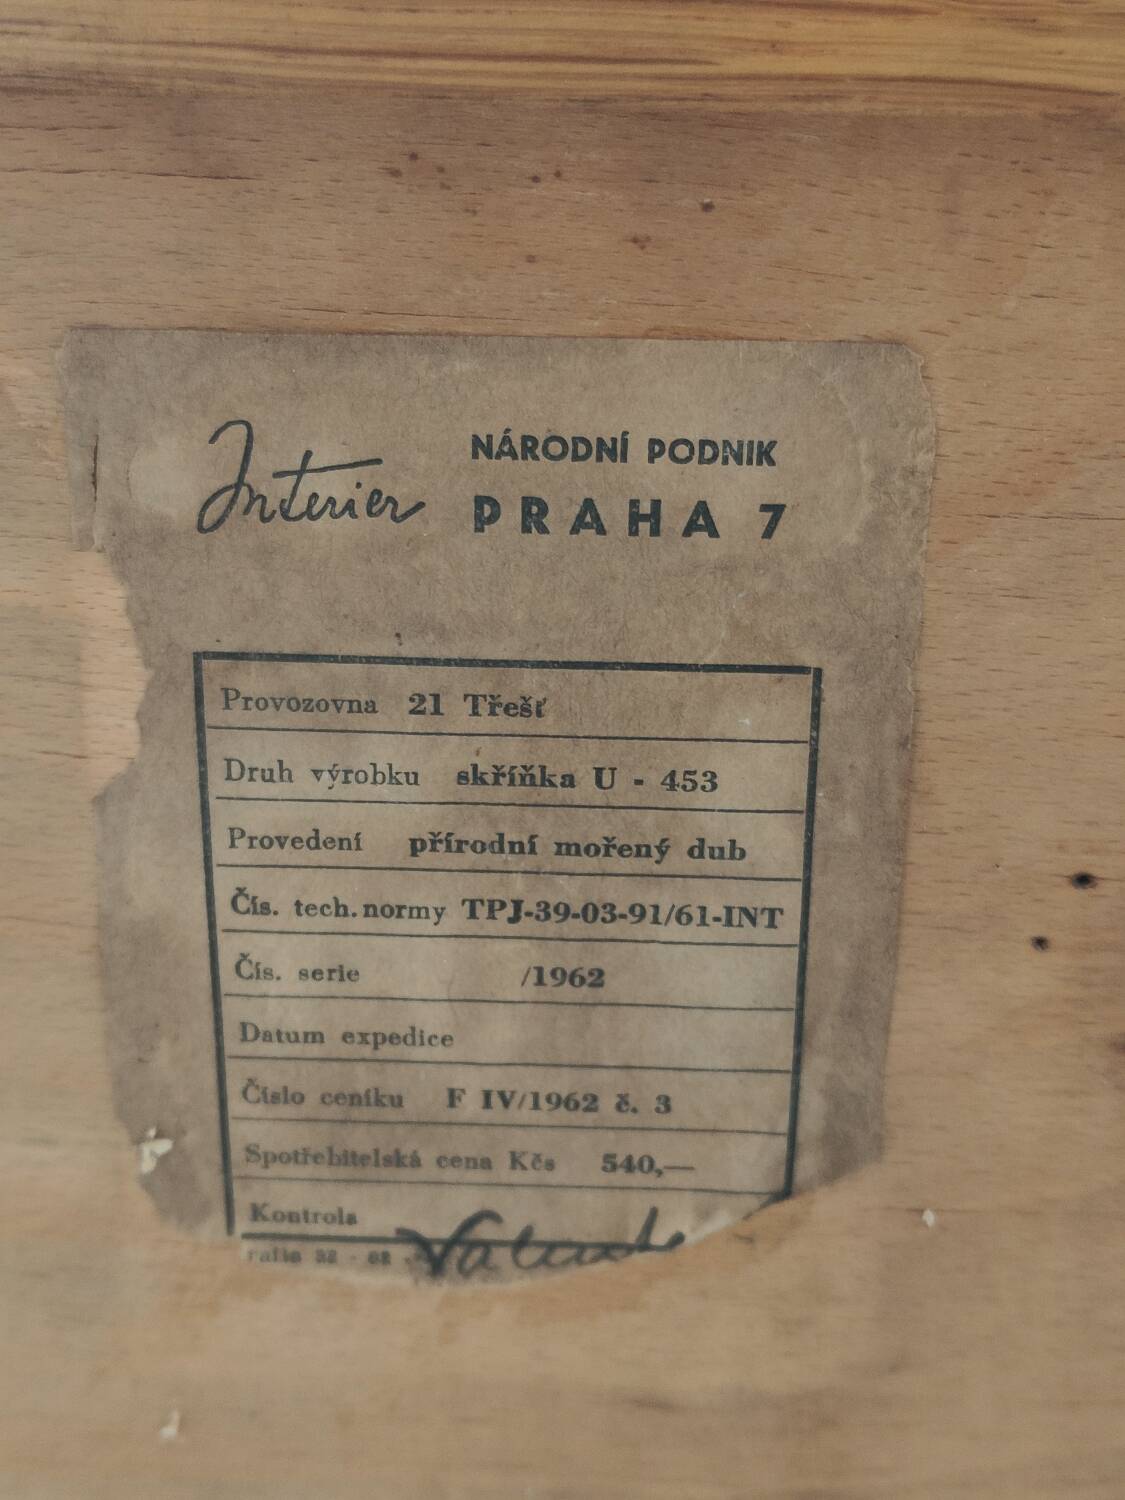 Interier NÁRODNÍ PODNIK
PRAHA 7
Provozovna 21 Třešť
Druh výrobku skříňka U - 453
Provedení přírodní mořený dub
Čís. tech. normy TPJ-39-03-91/61-INT
Čís. serie /1962
Datum expedice
Číslo ceníku F IV/1962 č. 3
Spotřebitelská cena Kčs 540,—
Kontrola